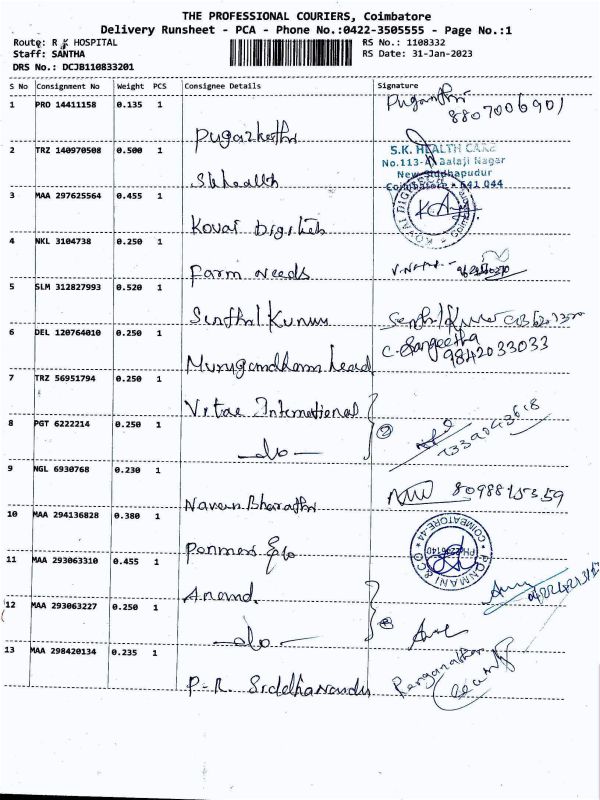 THE PROFESSIONAL COURIERS, Coimbatore
Delivery Runsheet - PCA - Phone No.:0422-3505555 - Page No.:1
Route: R K HOSPITAL RS No.: 1108332
Staff: SANTHA RS Date: 31-Jan-2023
DRS No.: DCJB110833201
S No Consignment No Weight PCS Consignee Details Signature
1 PRO 14411158 0.135 1
8807006901
Pugazhenthi
2 TRZ 140970508 0.500 1
S.K. HEALTH CARE
No.113-A Balaji Nagar
New Siddhapudur
Coimbatore - 641 044
Sk health
3 MAA 297625564 0.455 1
KOVAI DIGITECH
Kovai Digitets
4 NKL 3104738 0.250 1
Farm needs
5 SLM 312827993 0.520 1
Senthil Kumar
Senthil Kumar
6 DEL 120764010 0.250 1
C. Sangeetha
9842033033
Murugandham head
7 TRZ 56951794 0.250 1
Vitae International
8 PGT 6222214 0.250 1
2
7339043618
-do-
9 NGL 6930768 0.230 1
8098815359
Naveen Bharathi
10 MAA 294136828 0.380 1
PONMANI & CO
COIMBATORE-44
Ponmani & Co
11 MAA 293063310 0.455 1
Anand.
12 MAA 293063227 0.250 1
-do-
13 MAA 298420134 0.235 1
Ranganathan
P-R. Siddhanandu